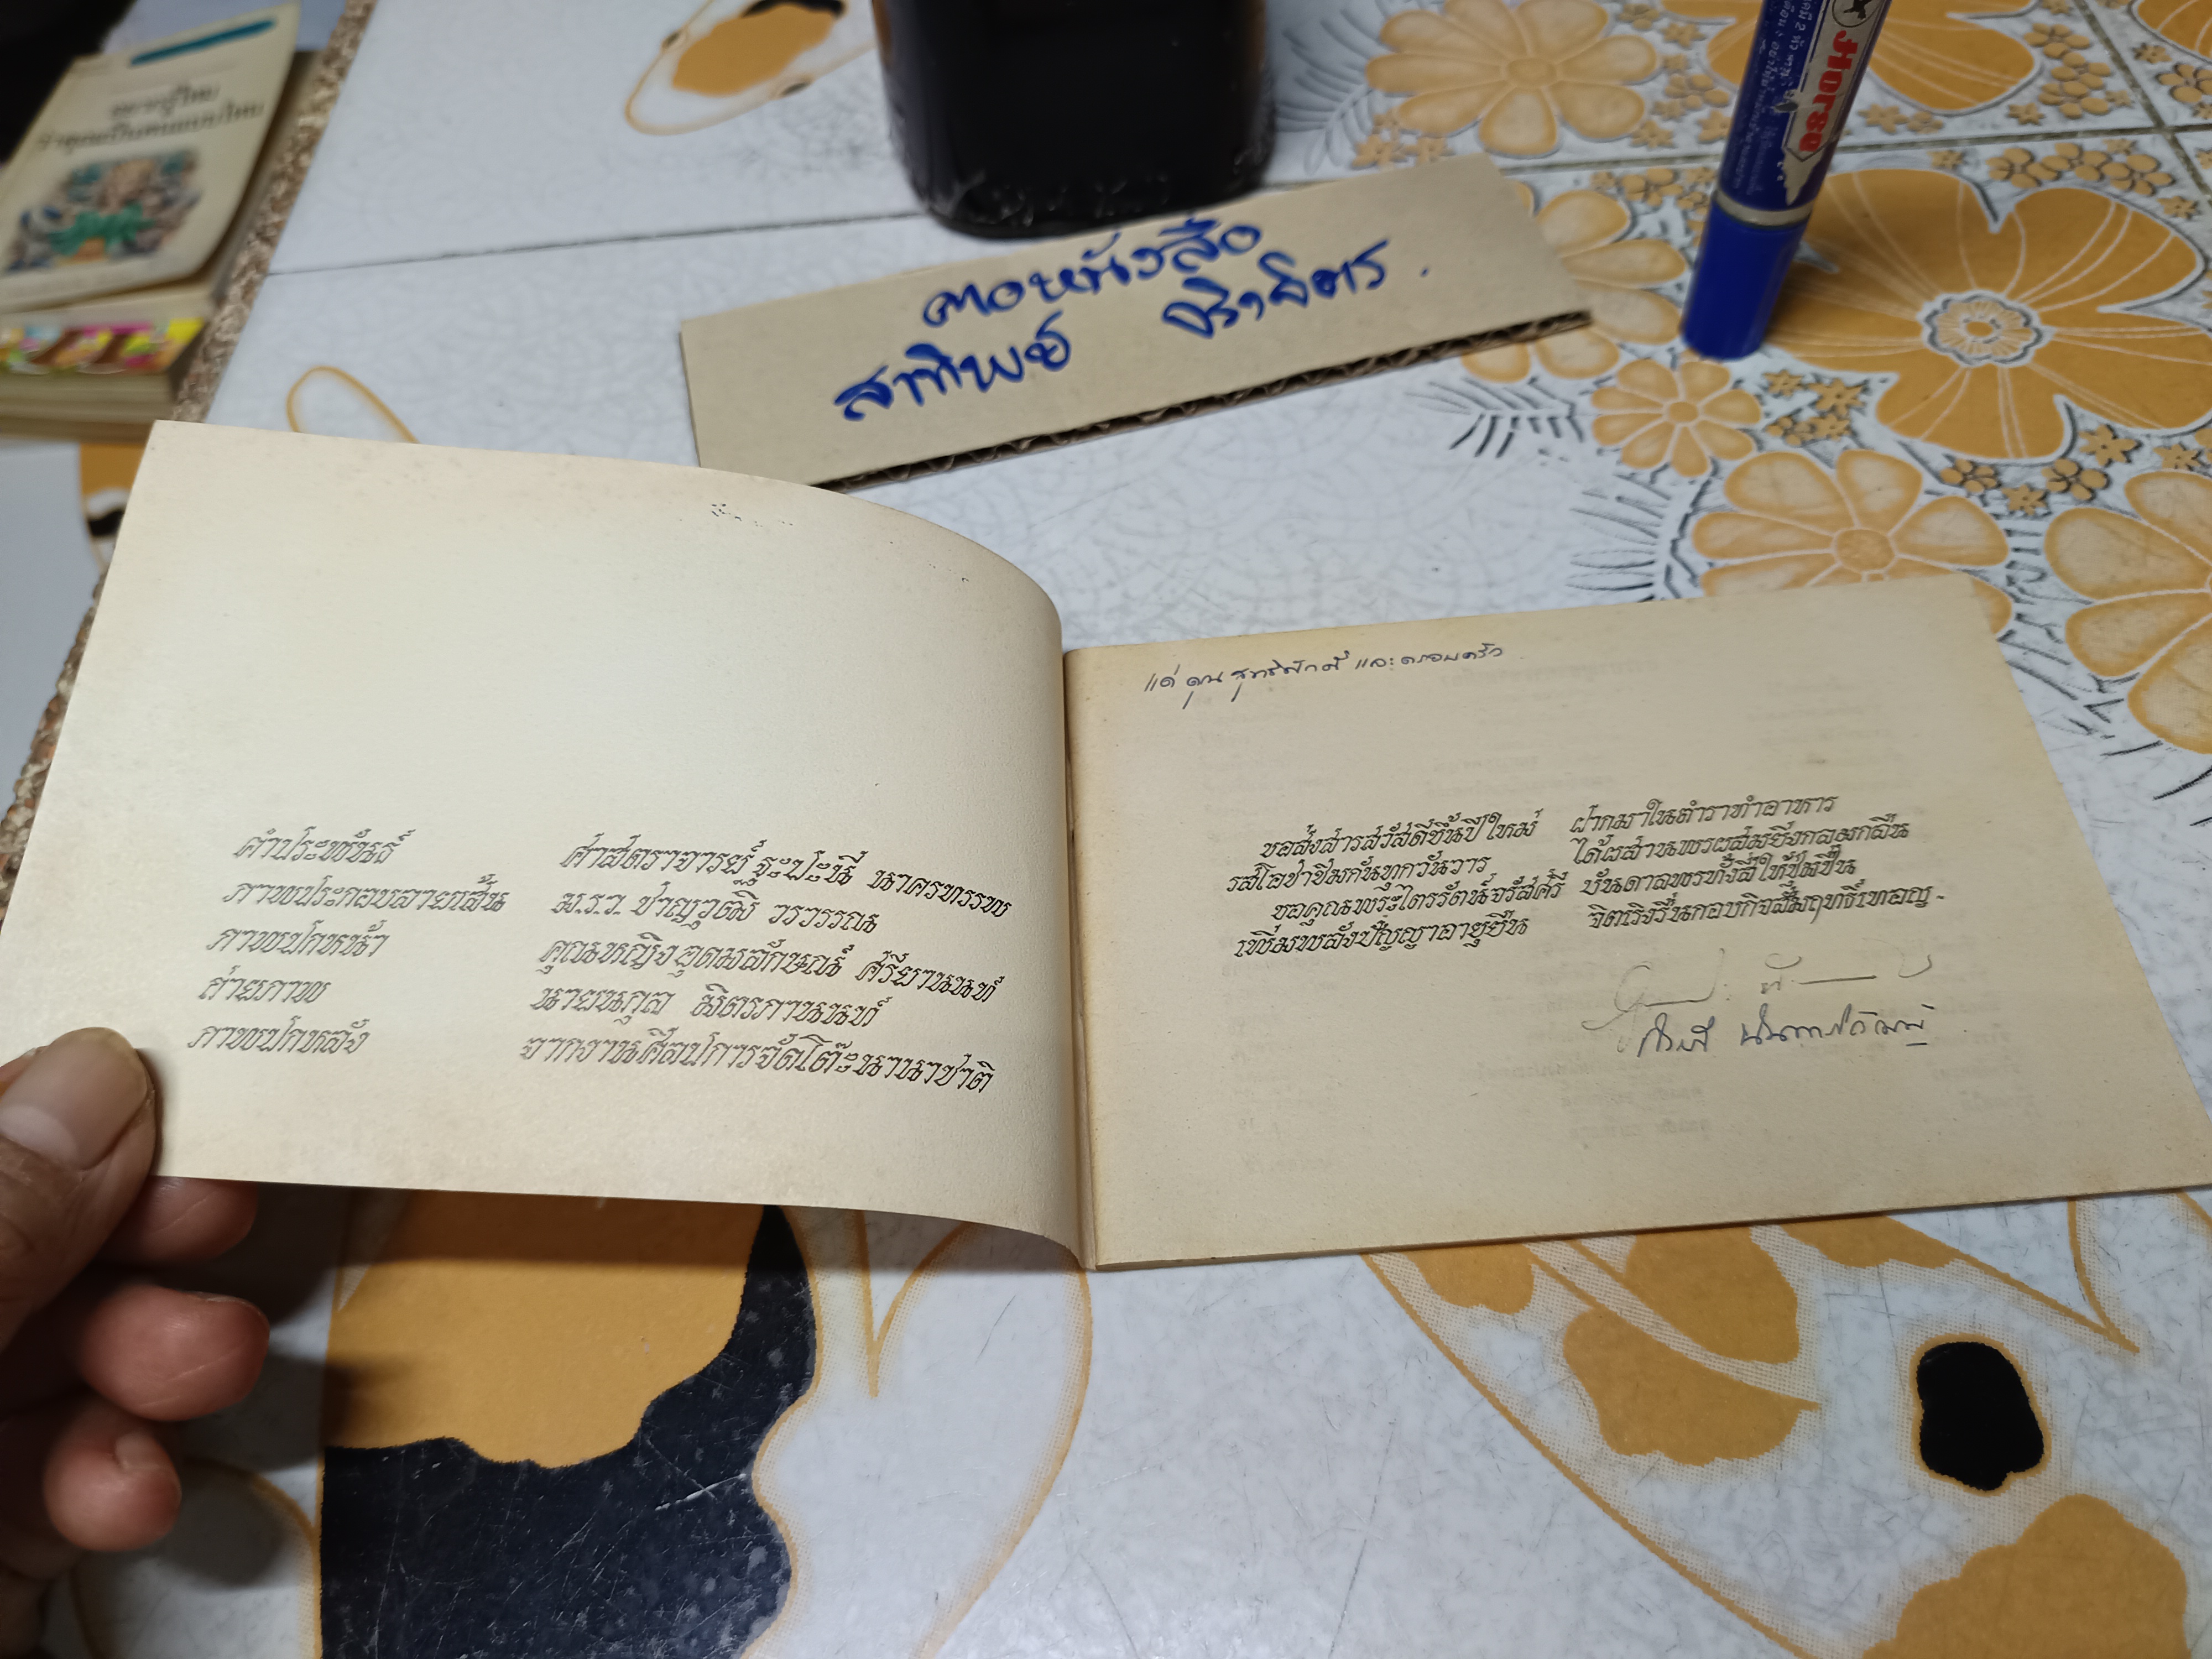 คอหนังสือ
สาทิพย์
ตราม้า
คำประพันธ์ ศาสตราจารย์ ฐะปะนีย์ นาครทรรพ
ภาพประกอบลายเส้น ม.ร.ว. ชาญวุฒิ วรวรรณ
ภาพปกหน้า คุณหญิงอุดมลักษณ์ ศรียานนท์
ถ่ายภาพ นายนกูล มิตรภานนท์
ภาพปกหลัง จากงานศิลปการจัดโต๊ะนานาชาติ
แด่ คุณ และครอบครัว
ขอส่งสารสวัสดีขึ้นปีใหม่ ฝากมาในตำราทำอาหาร
รสโอชาชิมกันทุกวันวาร ได้ผสานพรผสมยิ่งกลมกลืน
ขอคุณพระไตรรัตน์จรัสศรี บันดาลพรทั้งสี่ให้ชุ่มชื่น
เพิ่มพลังปัญญาอายุยืน จิตเริงรื่นกอบกิจสัมฤทธิ์เทอญ.